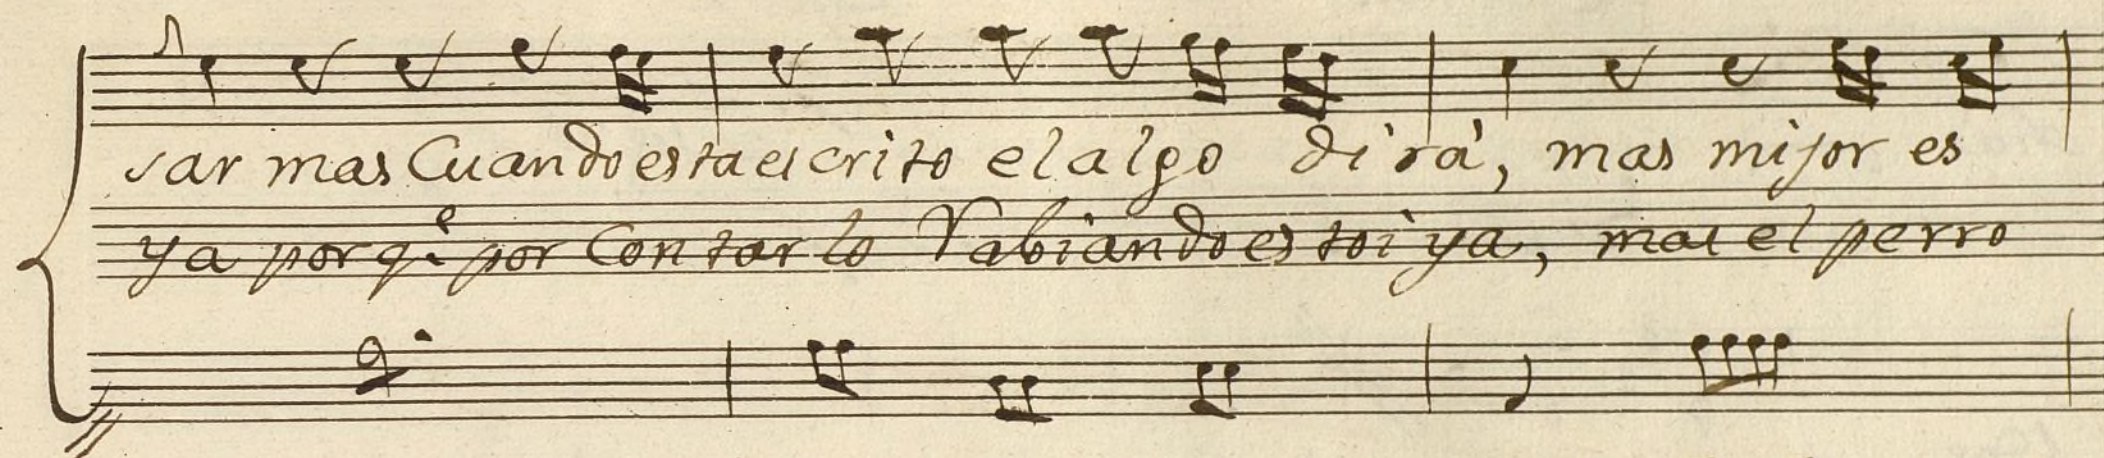 sar mas Cuando esta escrito el algo dirá, mas mijor es
ya por q.e por Contar lo Rabiando estoi ya, mas el perro